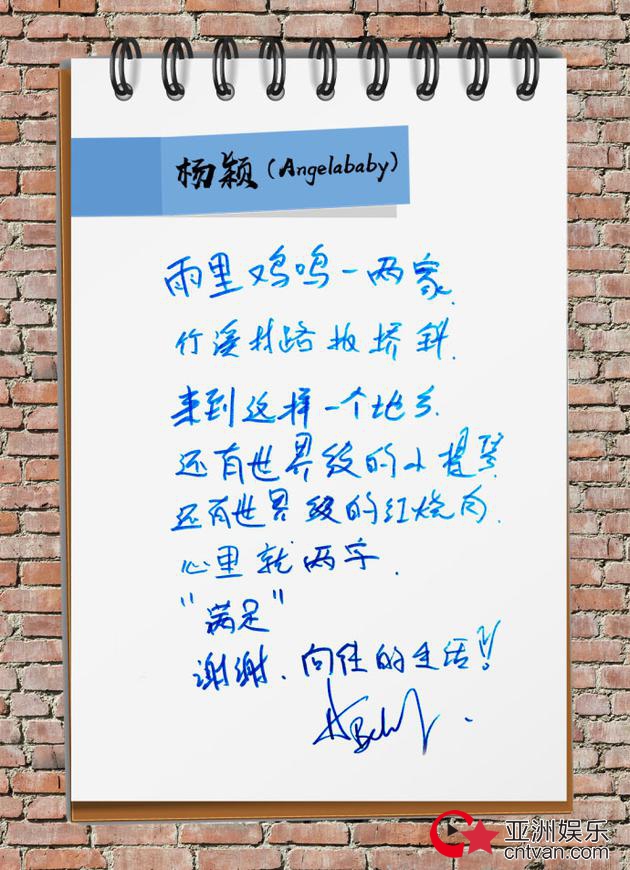 杨颖（Angelababy）
雨里鸡鸣一两家.
竹溪村路板桥斜.
来到这样一个地方.
还有世界级的小提琴
还有世界级的红烧肉.
心里就两字.
"满足"
谢谢.向往的生活!!
亚洲娱乐
cntvan.com